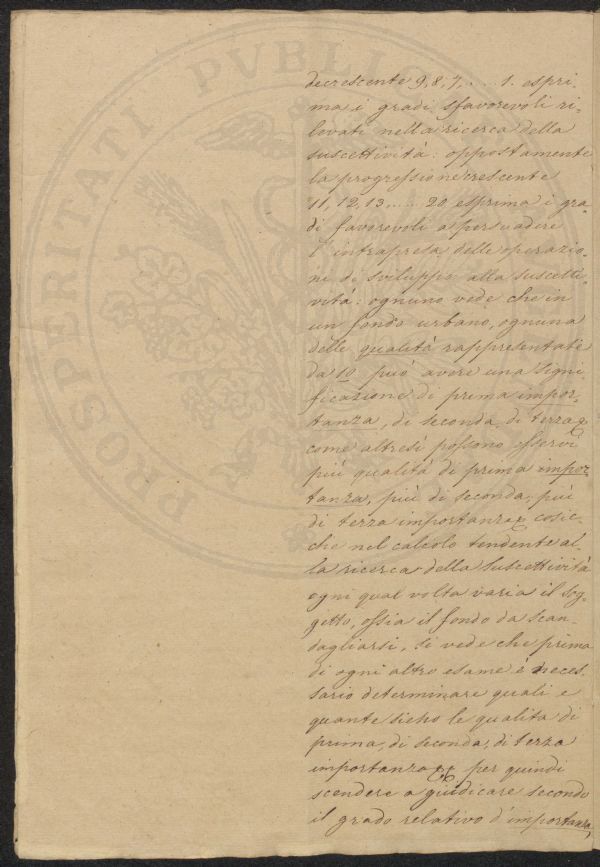 PROSPERITATI PVBLIC
decrescente 9, 8, 7, .... 1. espri-
ma i gradi sfavorevoli ri-
levati nella ricerca della
suscettività: oppostamente
la progressione crescente
11, 12, 13, ..... 20 esprima i gra-
di favorevoli a persuadere
l'intrapresa delle operazio-
ni di sviluppo alla suscetti-
vità: ognuno vede che in
un fondo urbano, ognuna
delle qualità rappresentate
da 10 può avere una signi-
ficazione di prima impor-
tanza, di seconda, di terza
come altresì possono esservi
più qualità di prima impor-
tanza, più di seconda, più
di terza importanza cosic-
che nel calcolo tendente al-
la ricerca della suscettività
ogni qual volta varia il sog-
getto, ossia il fondo da scan-
dagliarsi, si vede che prima
di ogni altro esame è neces-
sario determinare quali e
quante sieno le qualità di
prima, di seconda, di terza
importanza per quindi
scendere a giudicare secondo
il grado relativo d'importanza,